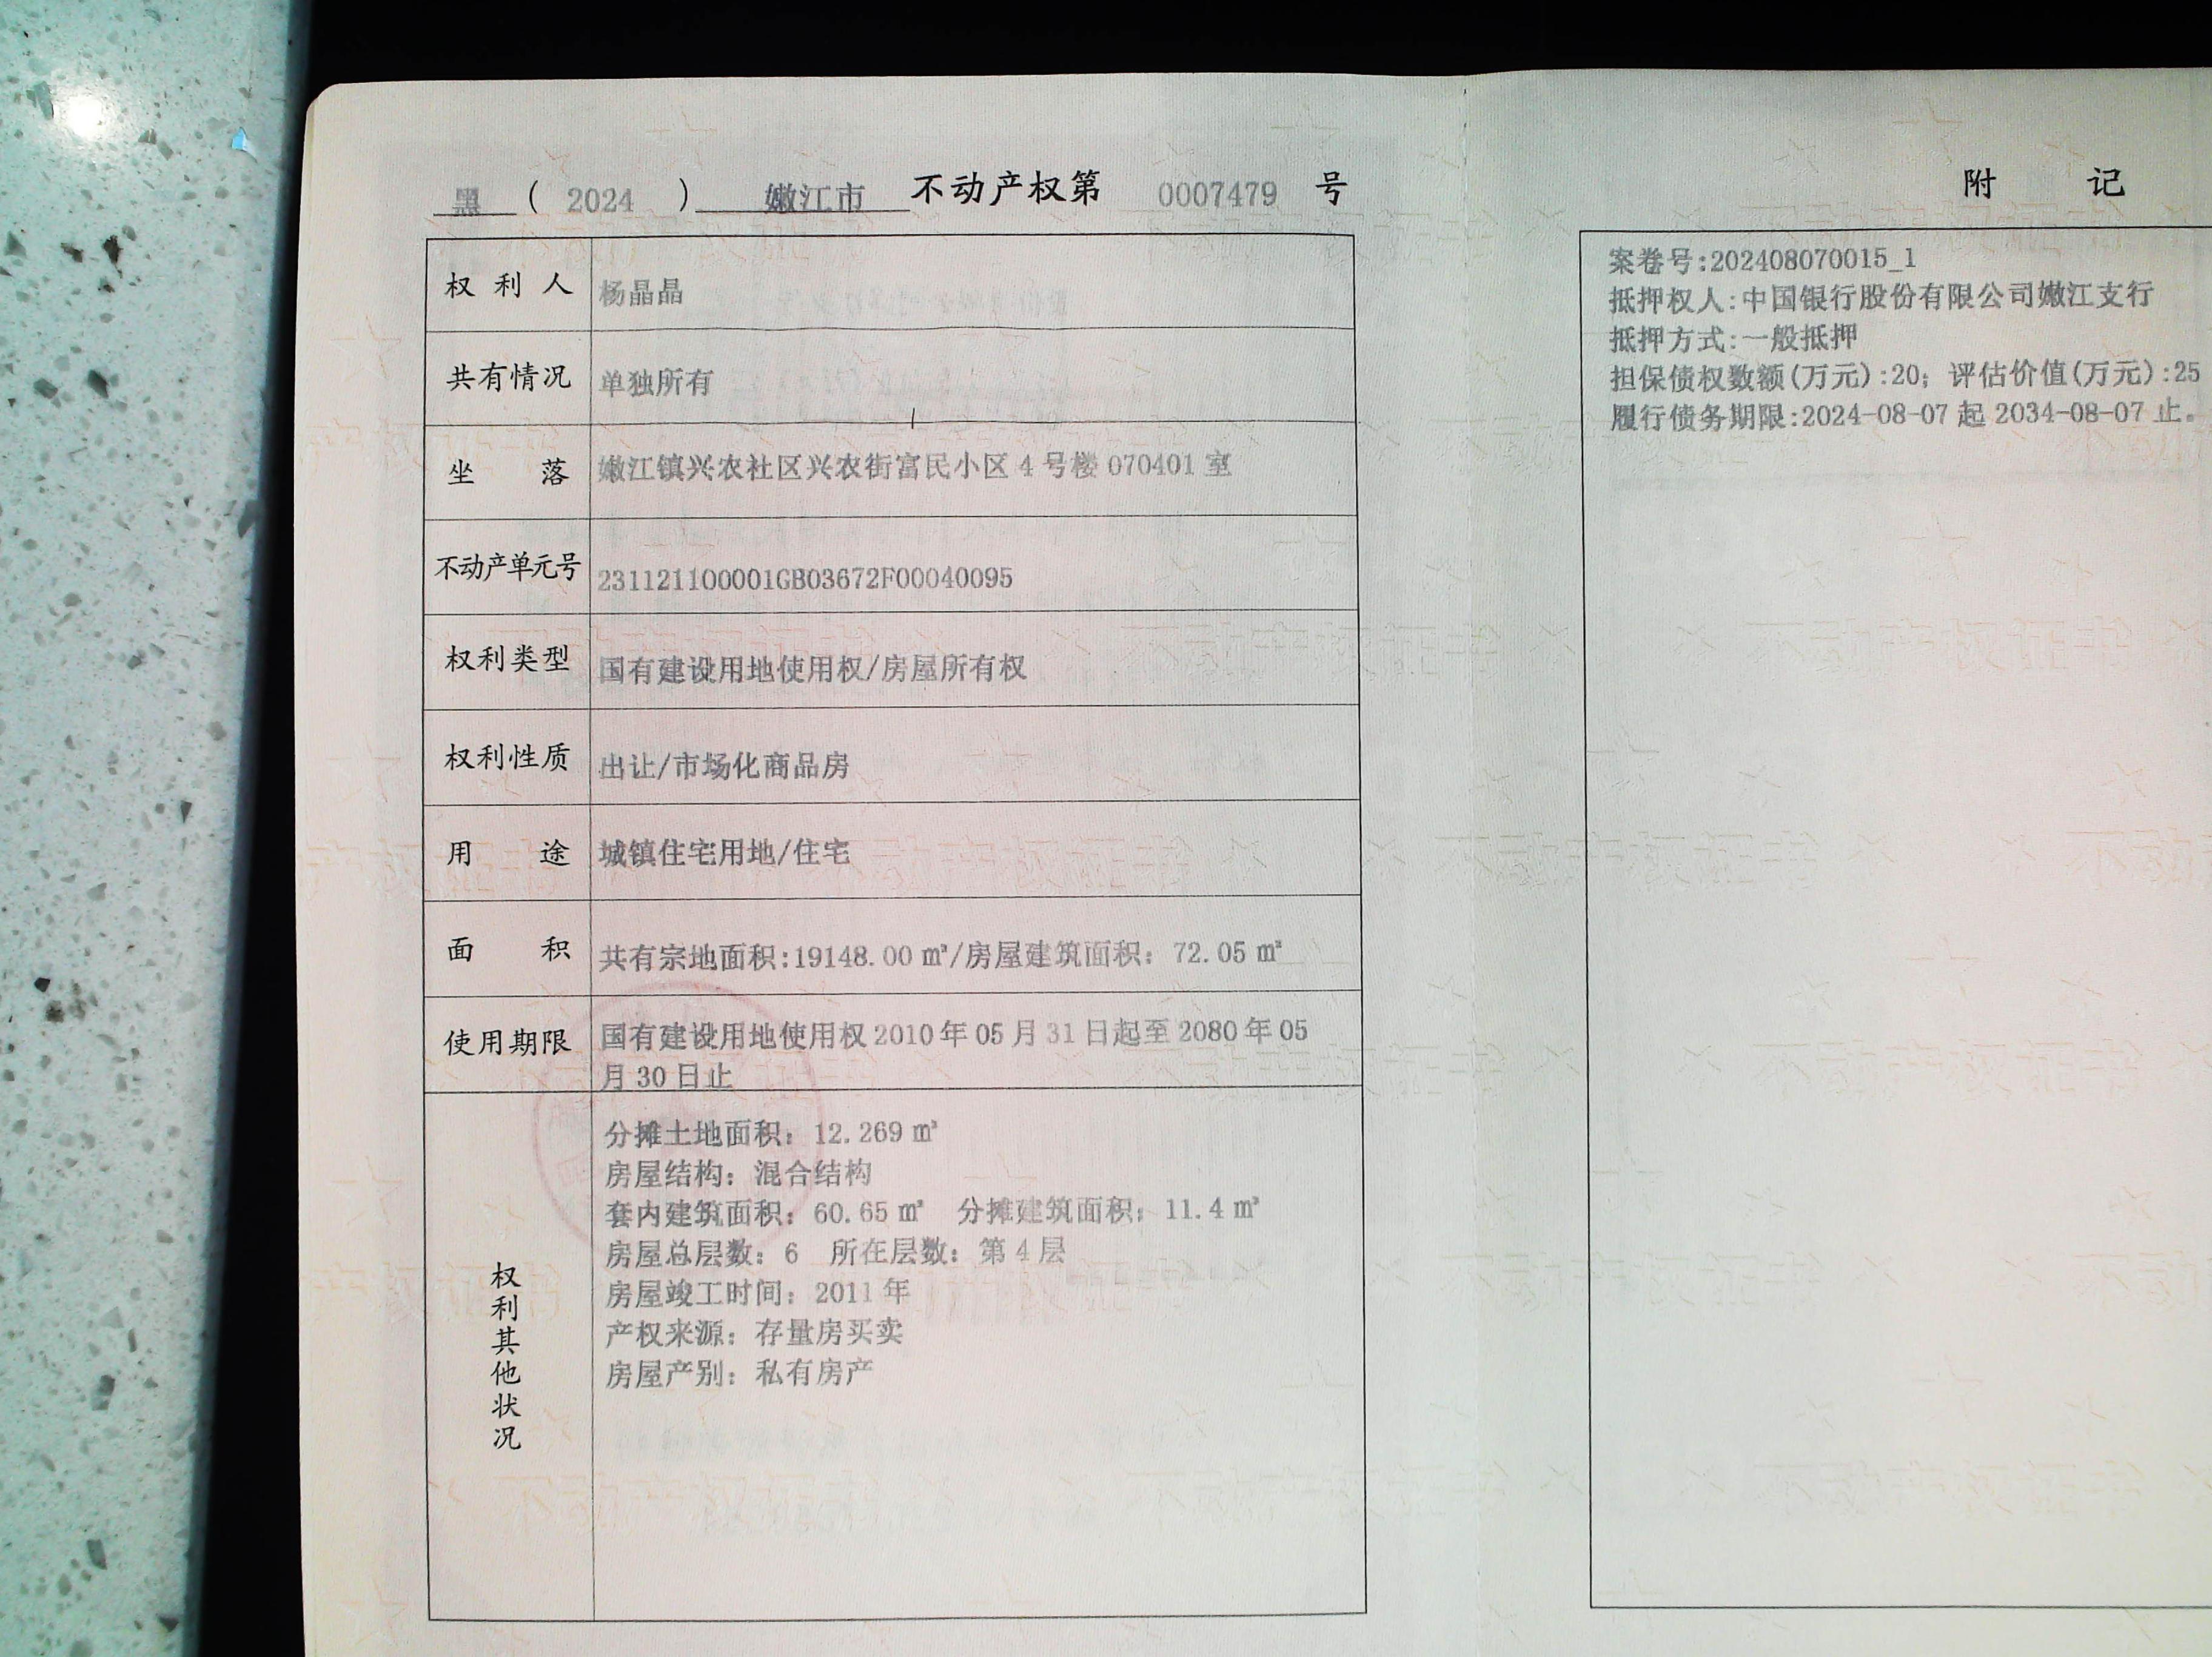 黑（2024）嫩江市 不动产权第 0007479 号
权利人 杨晶晶
共有情况 单独所有
坐落 嫩江镇兴农社区兴农街富民小区4号楼070401室
不动产单元号 231121100001GB03672F00040095
权利类型 国有建设用地使用权/房屋所有权
权利性质 出让/市场化商品房
用途 城镇住宅用地/住宅
面积 共有宗地面积:19148.00㎡/房屋建筑面积：72.05㎡
使用期限 国有建设用地使用权2010年05月31日起至2080年05
月30日止
权利其他状况
分摊土地面积：12.269㎡
房屋结构：混合结构
套内建筑面积：60.65㎡ 分摊建筑面积：11.4㎡
房屋总层数：6 所在层数：第4层
房屋竣工时间：2011年
产权来源：存量房买卖
房屋产别：私有房产
附记
案卷号:202408070015_1
抵押权人:中国银行股份有限公司嫩江支行
抵押方式:一般抵押
担保债权数额(万元):20；评估价值(万元):25
履行债务期限:2024-08-07起2034-08-07止。